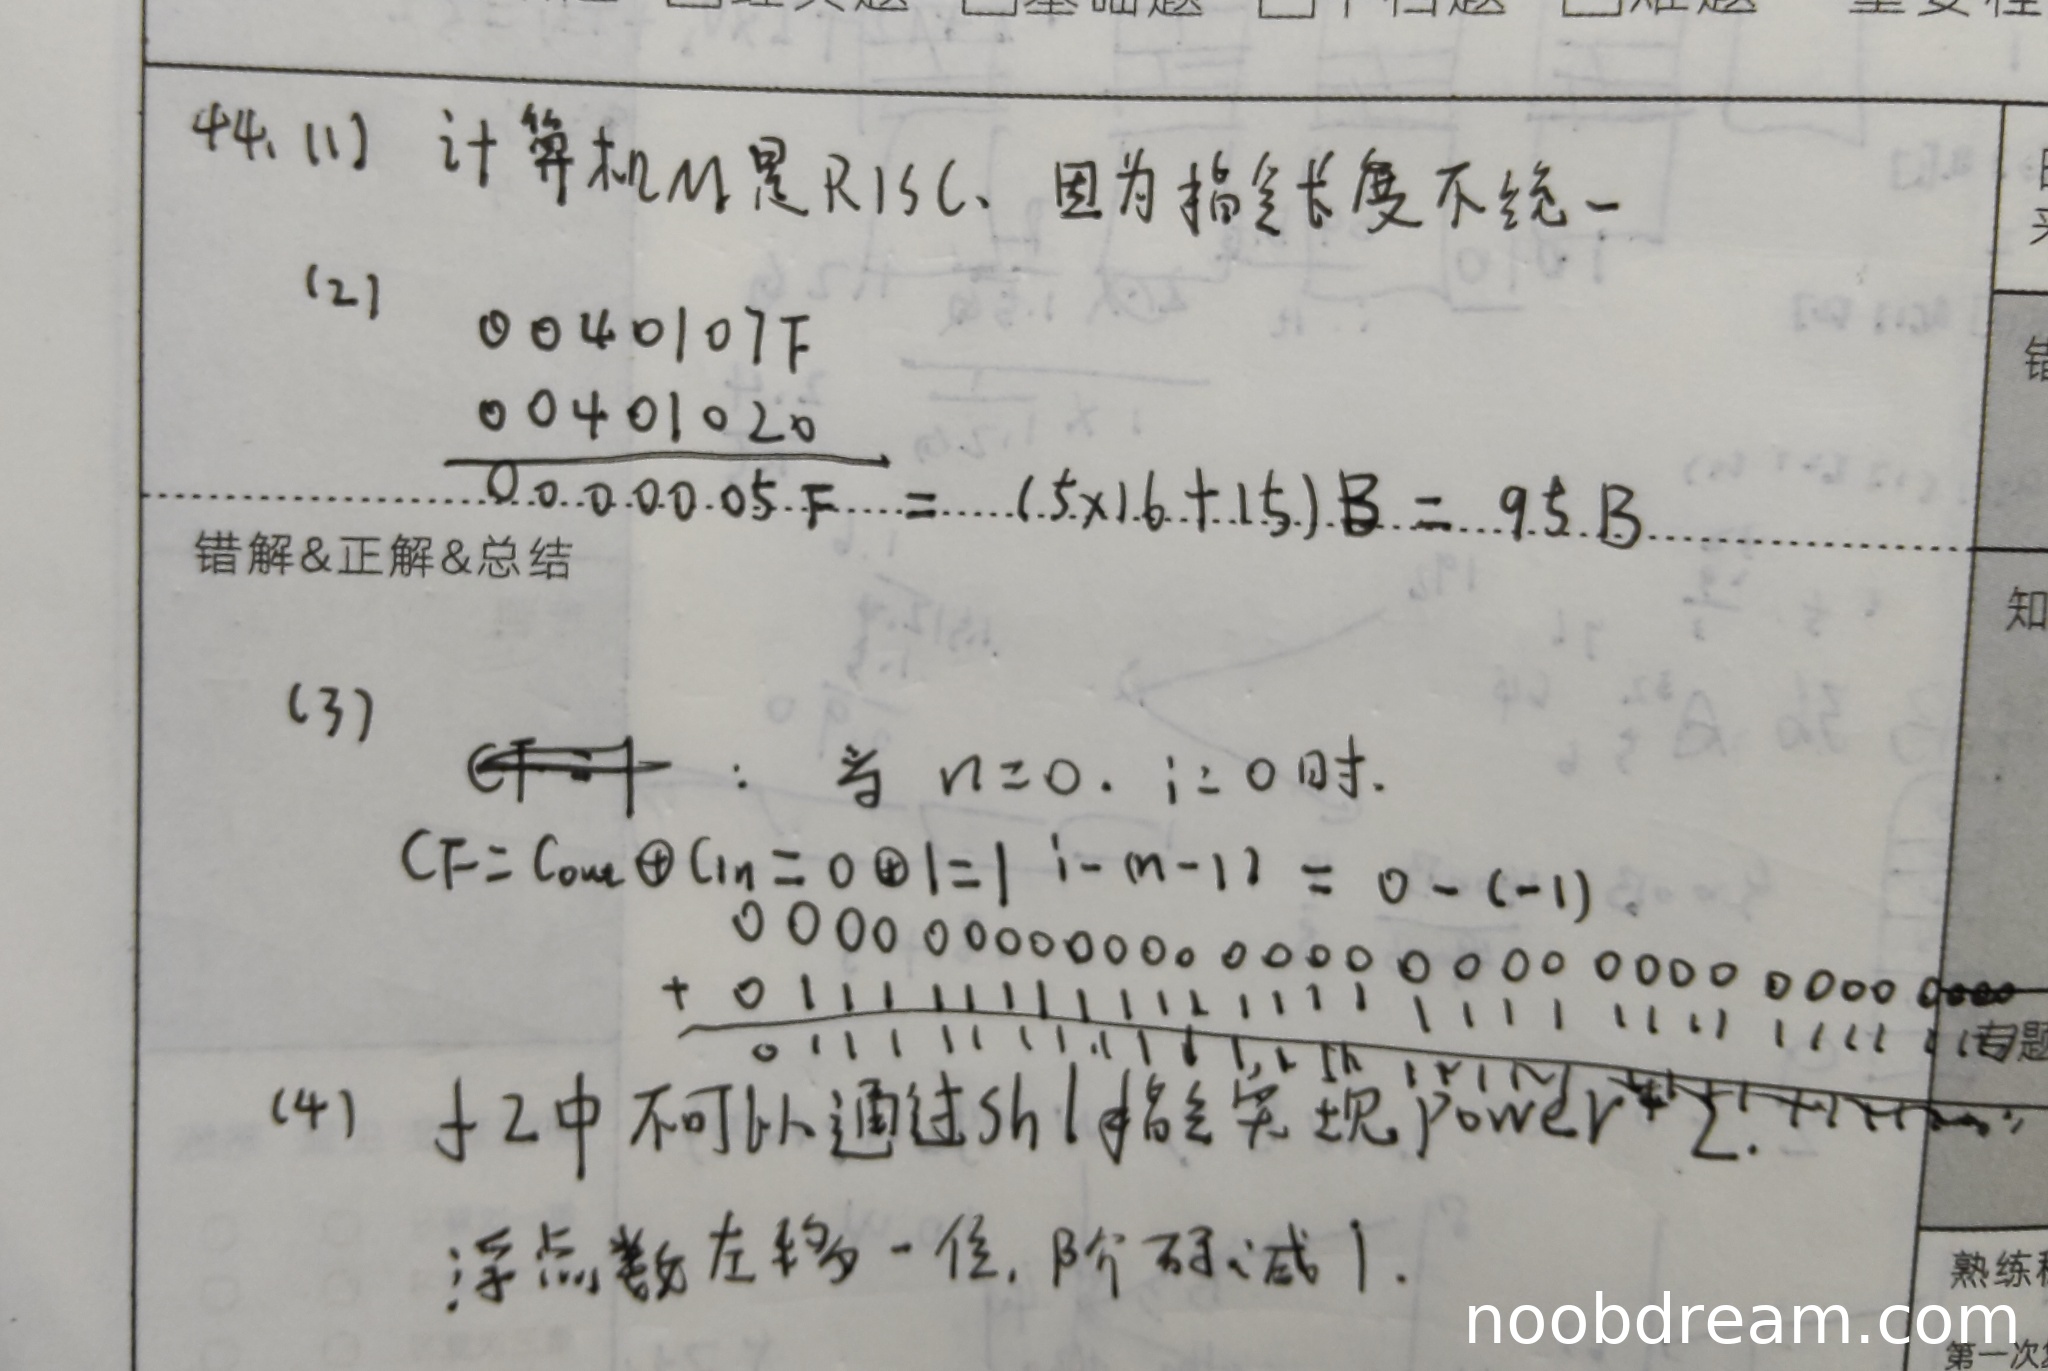 44.(1) 计算机M是RISC、因为指令长度不统一
(2)
0040107F
00401020
0000005F = (5×16+15)B = 95B
错解&正解&总结
知
(3)
: 当 n=0. i=0时.
CF=Cout⊕Cin=0⊕1=1 i-(n-1) = 0-(-1).
0000 0000 0000 0000 0000 0000 0000 0000
+ 0111 1111 1111 1111 1111 1111 1111
专题
(4) f2中不可以通过shl指令实现power*2.
浮点数左移一位,阶码减1.
熟练
noobdream.com
第一次